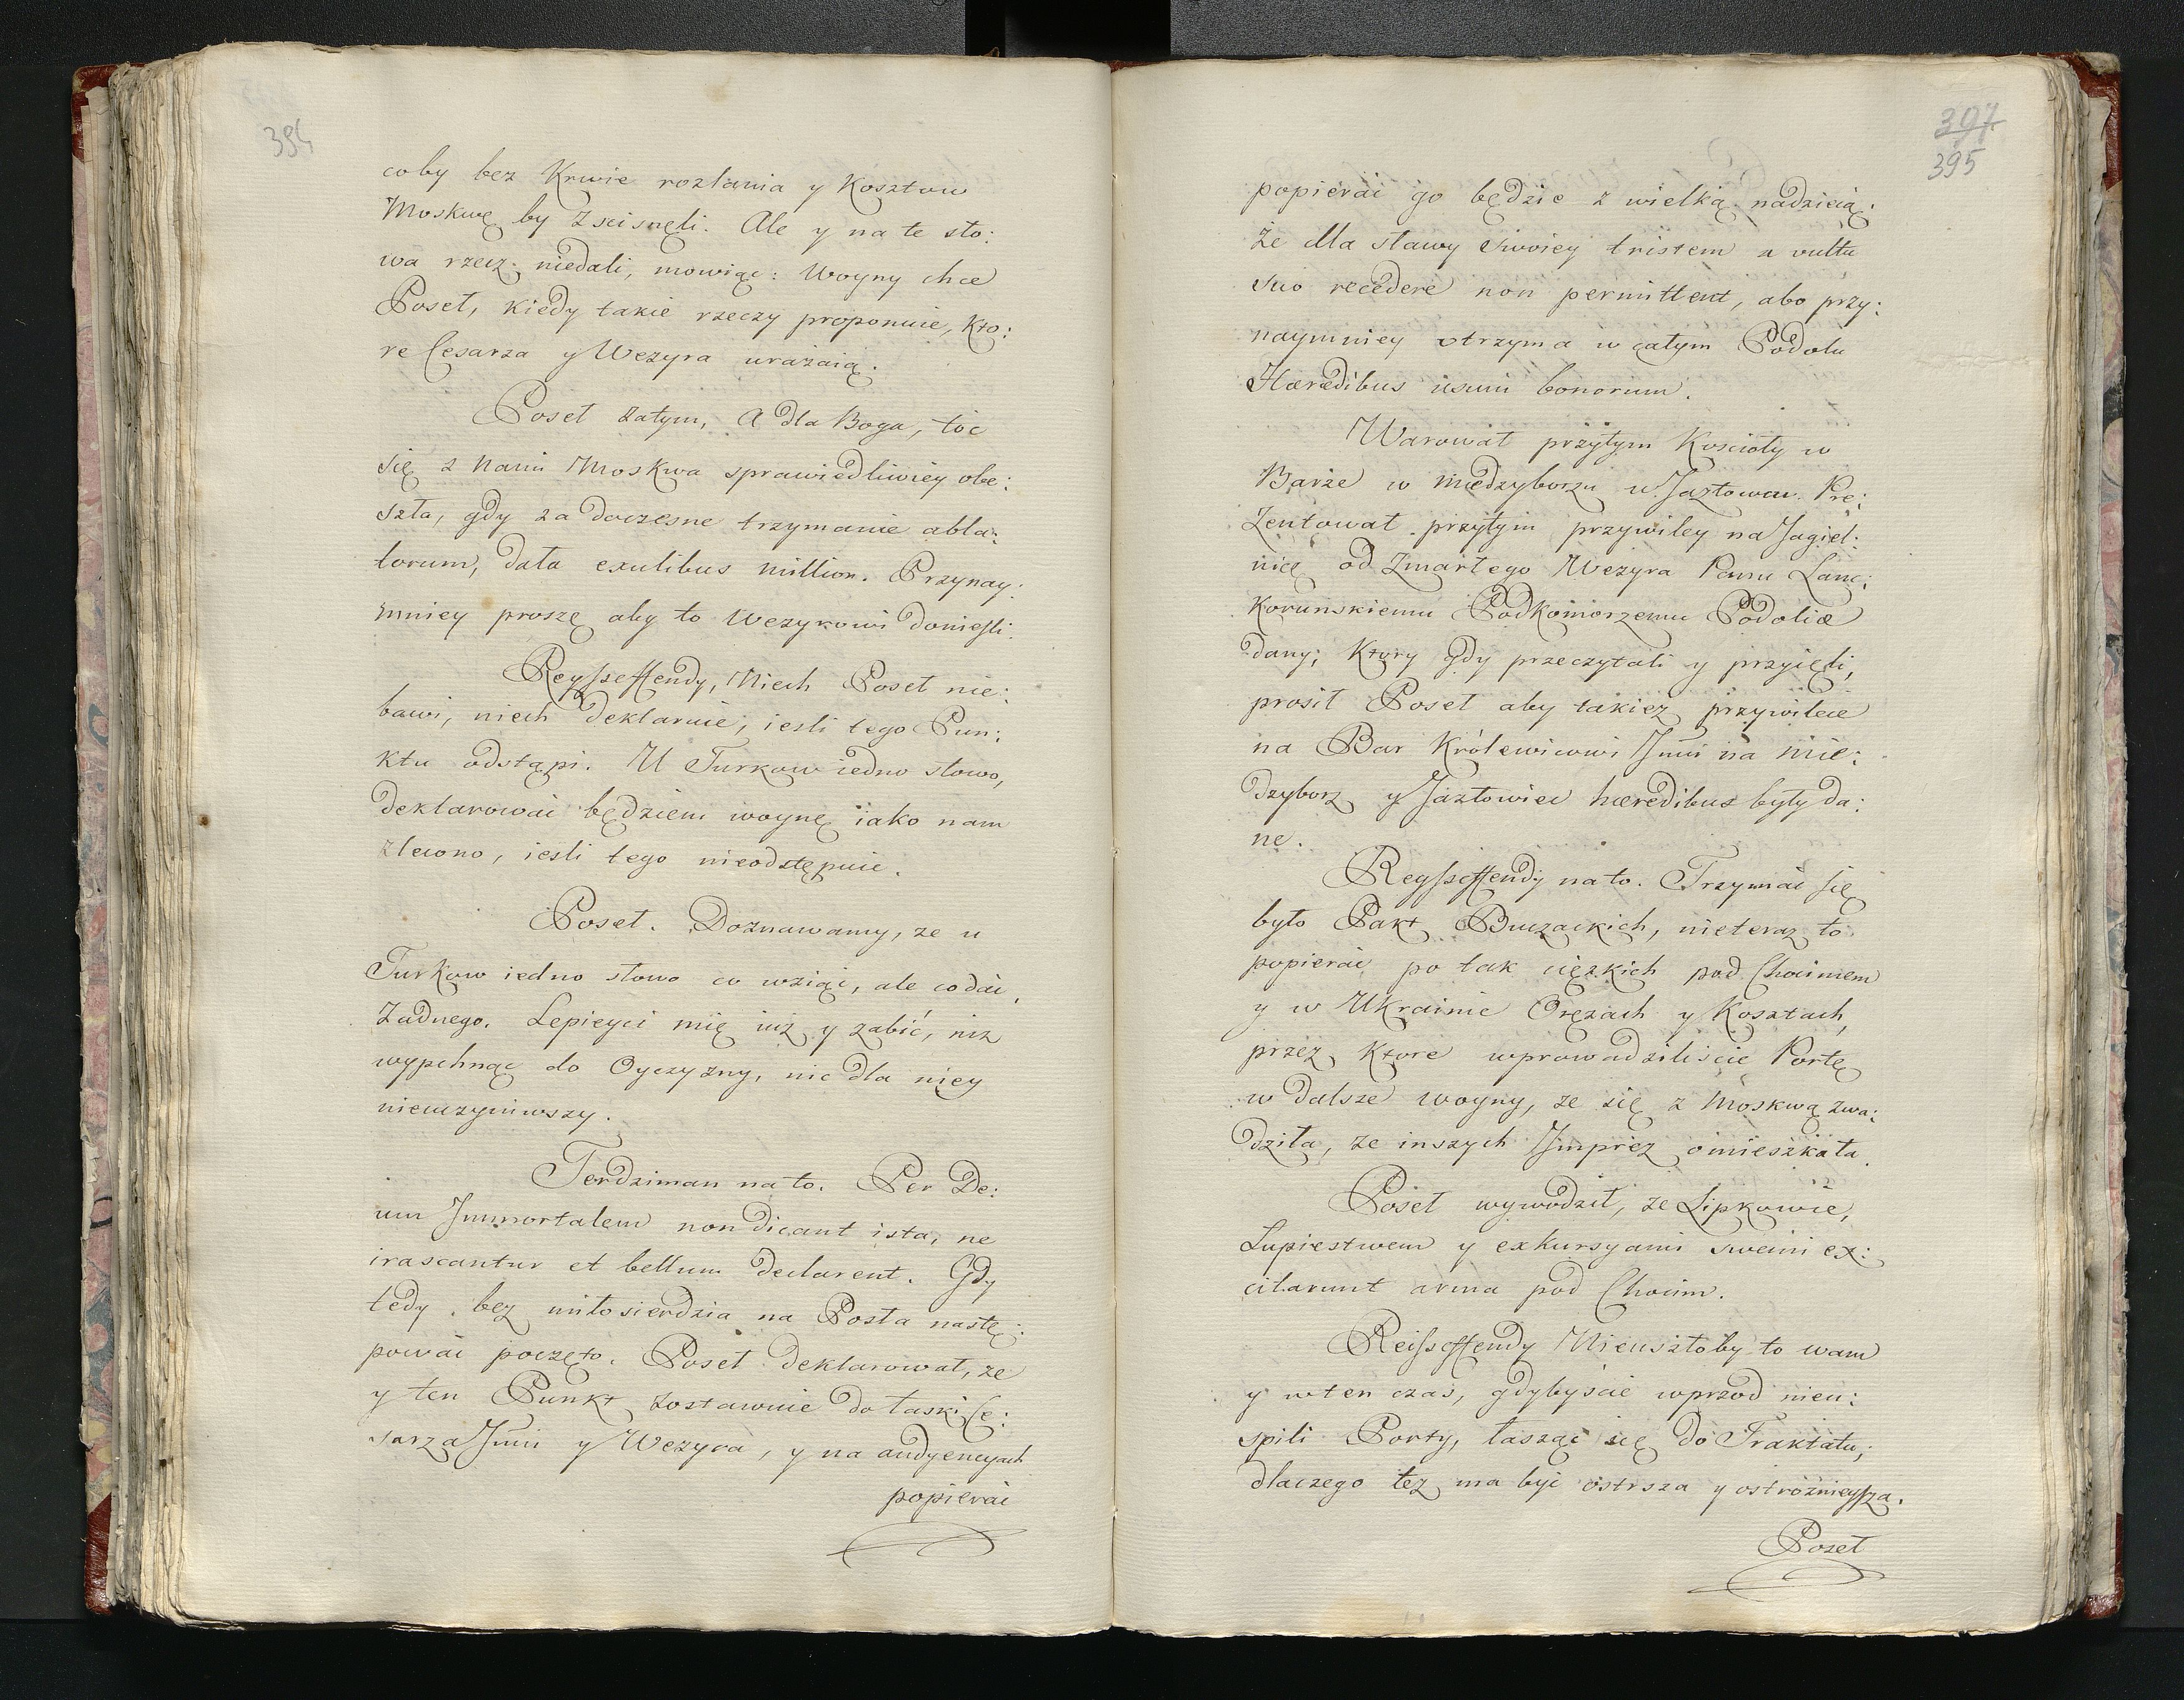 394
coby bez Krwie rozlania y Kosztow
Moskwę by Zscisnęli. Ale y na te sło:
wa rzecz niedali, mowiąc: Woyny chce
Poseł, kiedy takie rzeczy proponuie, kto:
re Cesarza y Wezyra urażaią.
Poseł zatym, A dla Boga, toc
się z Nami Moskwa sprawiedliwiey obe:
szła, gdy za doczesne trzymanie abla:
torum, data exulibus million. Przynay:
mniey proszę aby to Wezyrowi doniesli.
Reysseffendy, Niech Poseł nie:
bawi, niech deklaruie, iesli tego Pun:
ktu odstąpi. U Turkow iedno słowo,
deklarowac będziem woynę iako nam
zlecono, iesli tego nieodstępuie.
Poseł. Doznawamy, ze u
Turkow iedno słowo co wziąc, ale co dac,
Żadnego. Lepieyci mię iuz y zabić, niz
wypchnąc do Oyczyzny, nic dla niey
nieuczyniwszy.
Terdziman na to. Per De:
um Immortalem non dicant ista, ne
irascantur et bellum declarent. Gdy
tedy bez miłosierdzia na Posła nastę:
powac poczęto. Poseł deklarował, ze
y ten Punkt zostawuie do łaski Ce:
sarza Jmci y Wezyra, y na audyencyach
popierac
397
395
popierac go będzie z wielką nadzieią.
że dla sławy swoiey tristem a vultu
suo recedere non permittent, abo przy:
naymniey otrzyma w całym Podolu
Hæredibus usum bonorum.
Warował przytym Koscioły w
Barze w Miedzyborzu w Jazłowcu. Pre:
zentował przytym przywiley na Jagiel:
nicę od Zmarłego Wezyra Panu Lanc:
korunskiemu Podkomorzemu Podoliæ
dany; Ktory gdy przeczytali y przyięli,
prosił Poseł aby takiez przywileie
na Bar Królewicowi Jmci na Mie:
dzyborz y Jazłowiec hæredibus były da:
ne.
Reysseffendy na to. Trzymac się
było Pakt Buczackich, nieteraz to
popierac po tak cięzkich pod Chocimem
y w Ukrainie Oręzach y Kosztach,
przez Ktore wprowadziliscie Portę
w dalsze woyny, ze się z Moskwą zwa:
dziła, ze inszych Imprez omieszkała.
Poseł wywodził, ze Lipkowie,
Łupiestwem y exkursyami swemi ex:
citarunt arma pod Chocim.
Reisseffendy Nieuszłoby to wam
y w ten czas, gdybyscie wprzod nieu:
spili Porty, łasząc się do Traktatu,
dlaczego tez ma byc ostrsza y ostrożnieysza.
Poseł